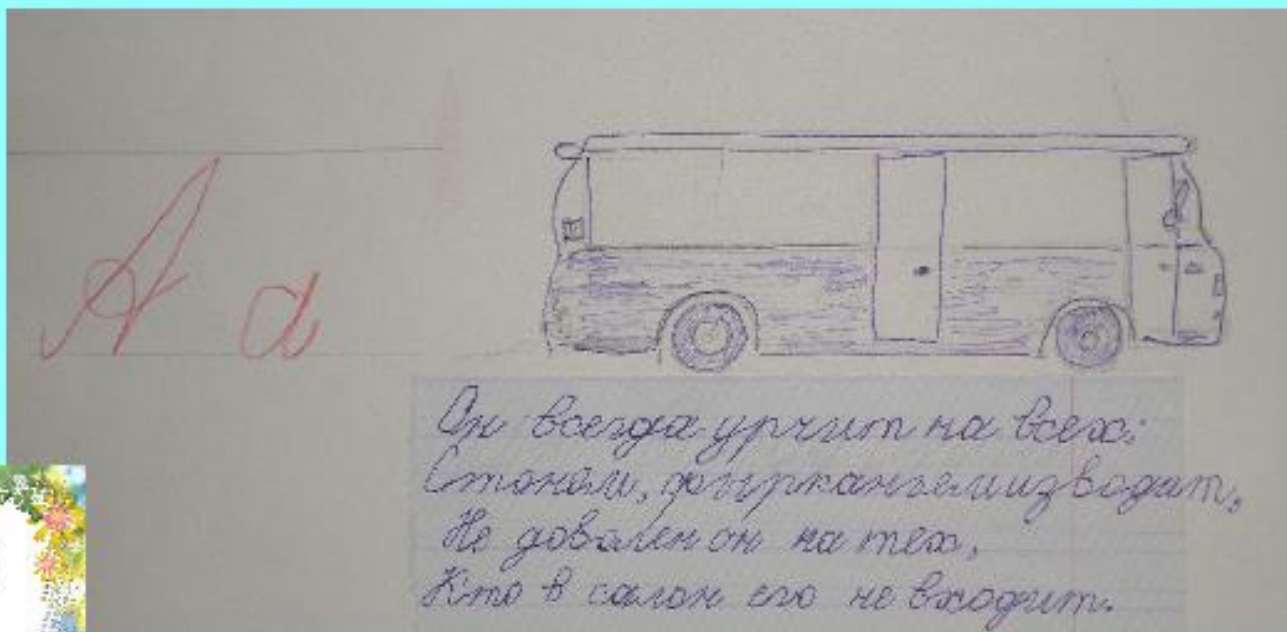 А а
Он всегда урчит на всех:
Стоном, фырканьем изводит,
Не довален он на тех,
Кто в салон его не входит.